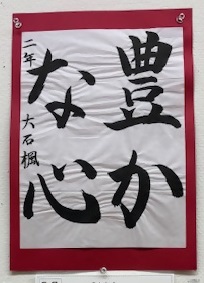 豊か
な心
二年 大石楓